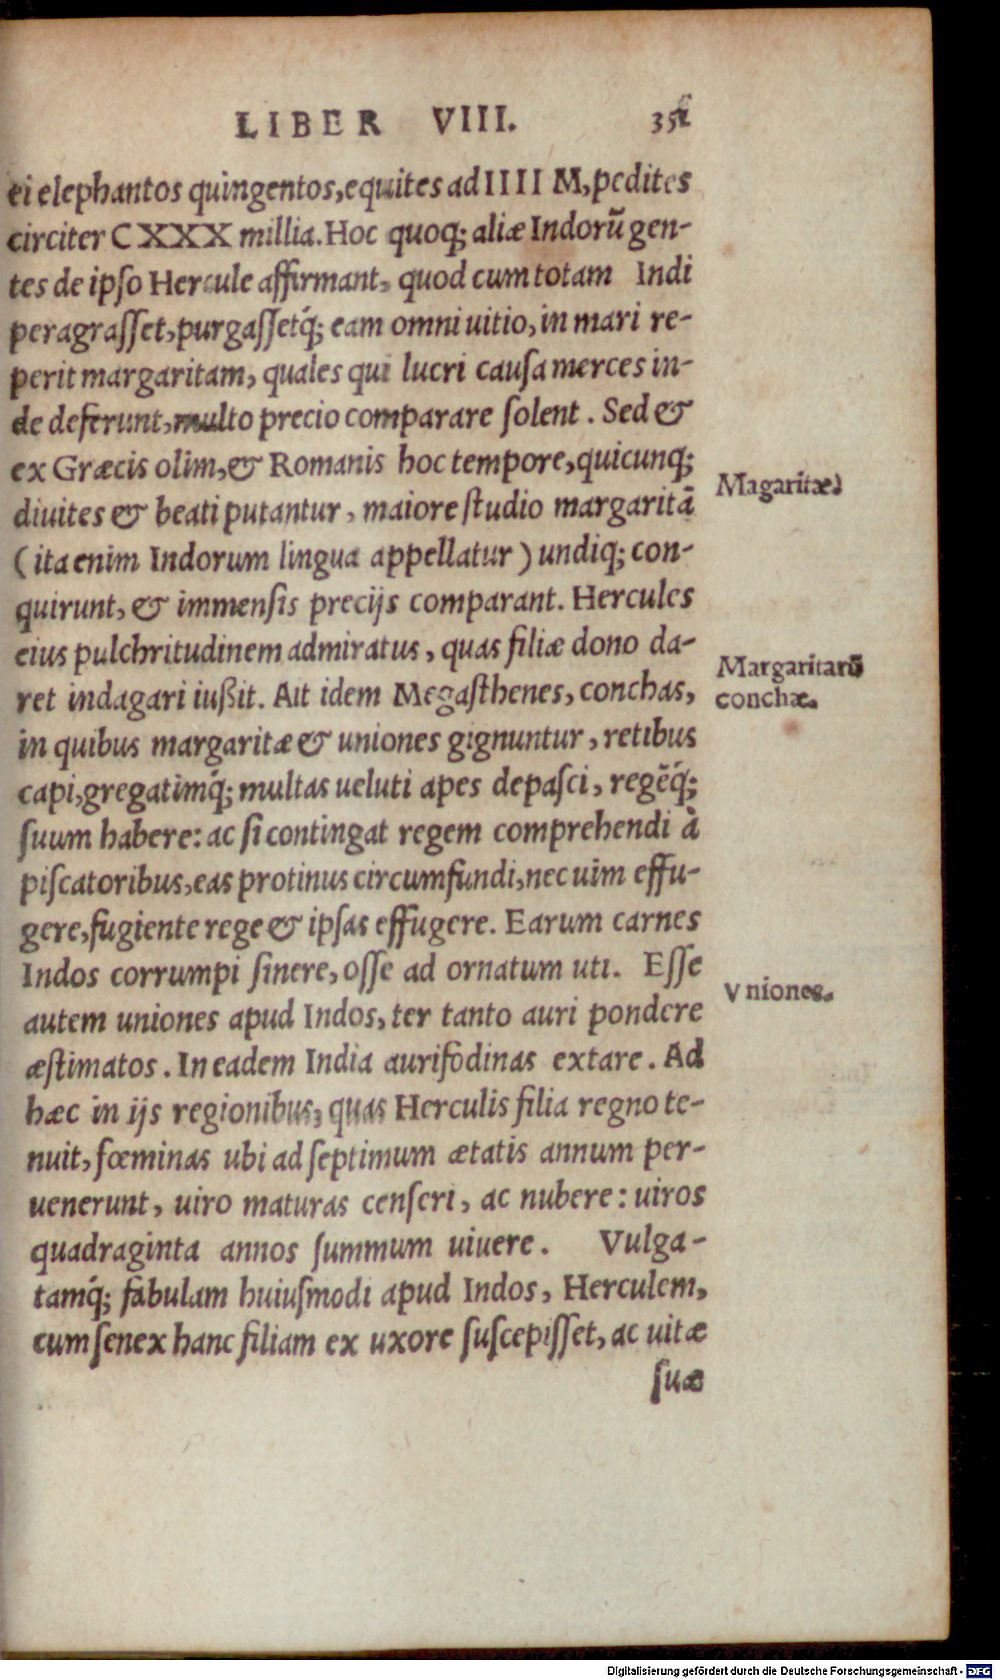 LIBER VIII.
ei elephantos quingentos, equites ad IIII M, pedites
circiter CXXX millia. Hoc quoq; aliæ Indorũ gen-
tes de ipſo Hercule affirmant, quod cum totam Indi
peragraſſet, purgaſſetq́; eam omni uitio, in mari re-
perit margaritam, quales qui lucri cauſa merces in-
de deferunt, multo precio comparare ſolent. Sed &
ex Græcis olim, & Romanis hoc tempore, quicunq;
Magaritæ.
diuites & beati putantur, maiore ſtudio margaritã
(ita enim Indorum lingua appellatur) undiq; con-
quirunt, & immenſis precijs comparant. Hercules
eius pulchritudinem admiratus, quas filiæ dono da-
Margaritarũ
ret indagari iußit. Ait idem Megaſthenes, conchas,
conchæ.
in quibus margaritæ & uniones gignuntur, retibus
capi, gregatimq́; multas ueluti apes depaſci, regẽq́;
ſuum habere: ac ſi contingat regem comprehendi à
piſcatoribus, eas protinus circumfundi, nec uim effu-
gere, fugiente rege & ipſas effugere. Earum carnes
Indos corrumpi ſinere, oſſe ad ornatum uti. Eſſe
Vniones.
autem uniones apud Indos, ter tanto auri pondere
æſtimatos. In eadem India aurifodinas extare. Ad
hæc in ijs regionibus, quas Herculis filia regno te-
nuit, fœminas ubi ad ſeptimum ætatis annum per-
uenerunt, uiro maturas cenſeri, ac nubere: uiros
quadraginta annos ſummum uiuere. Vulga-
tamq́; fabulam huiuſmodi apud Indos, Herculem,
cum ſenex hanc filiam ex uxore ſuſcepiſſet, ac uitæ
ſuæ
Digitalisierung gefördert durch die Deutsche Forschungsgemeinschaft - DFG